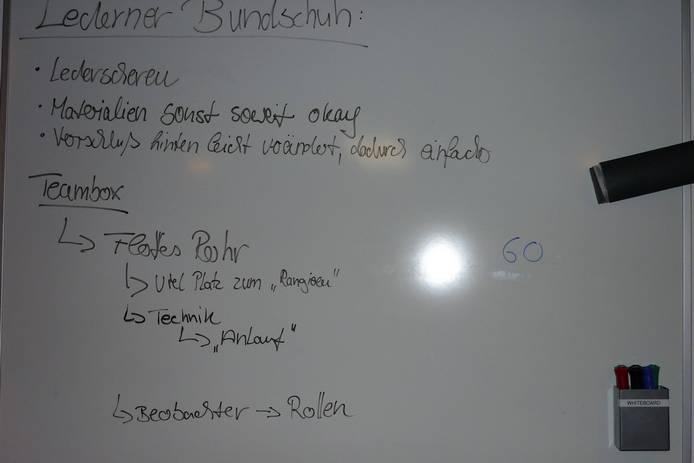 Lederner Bundschuh:
· Lederscheren
· Materialien sonst soweit okay
· Vorschluß hinten leicht verändert, dadurch einfach
Teambox
↳ Flottes Rohr
60
↳ Viel Platz zum „Rangieren"
↳ Technik
↳ „Anlauf"
↳ Beobachter → Rollen
WHITEBOARD